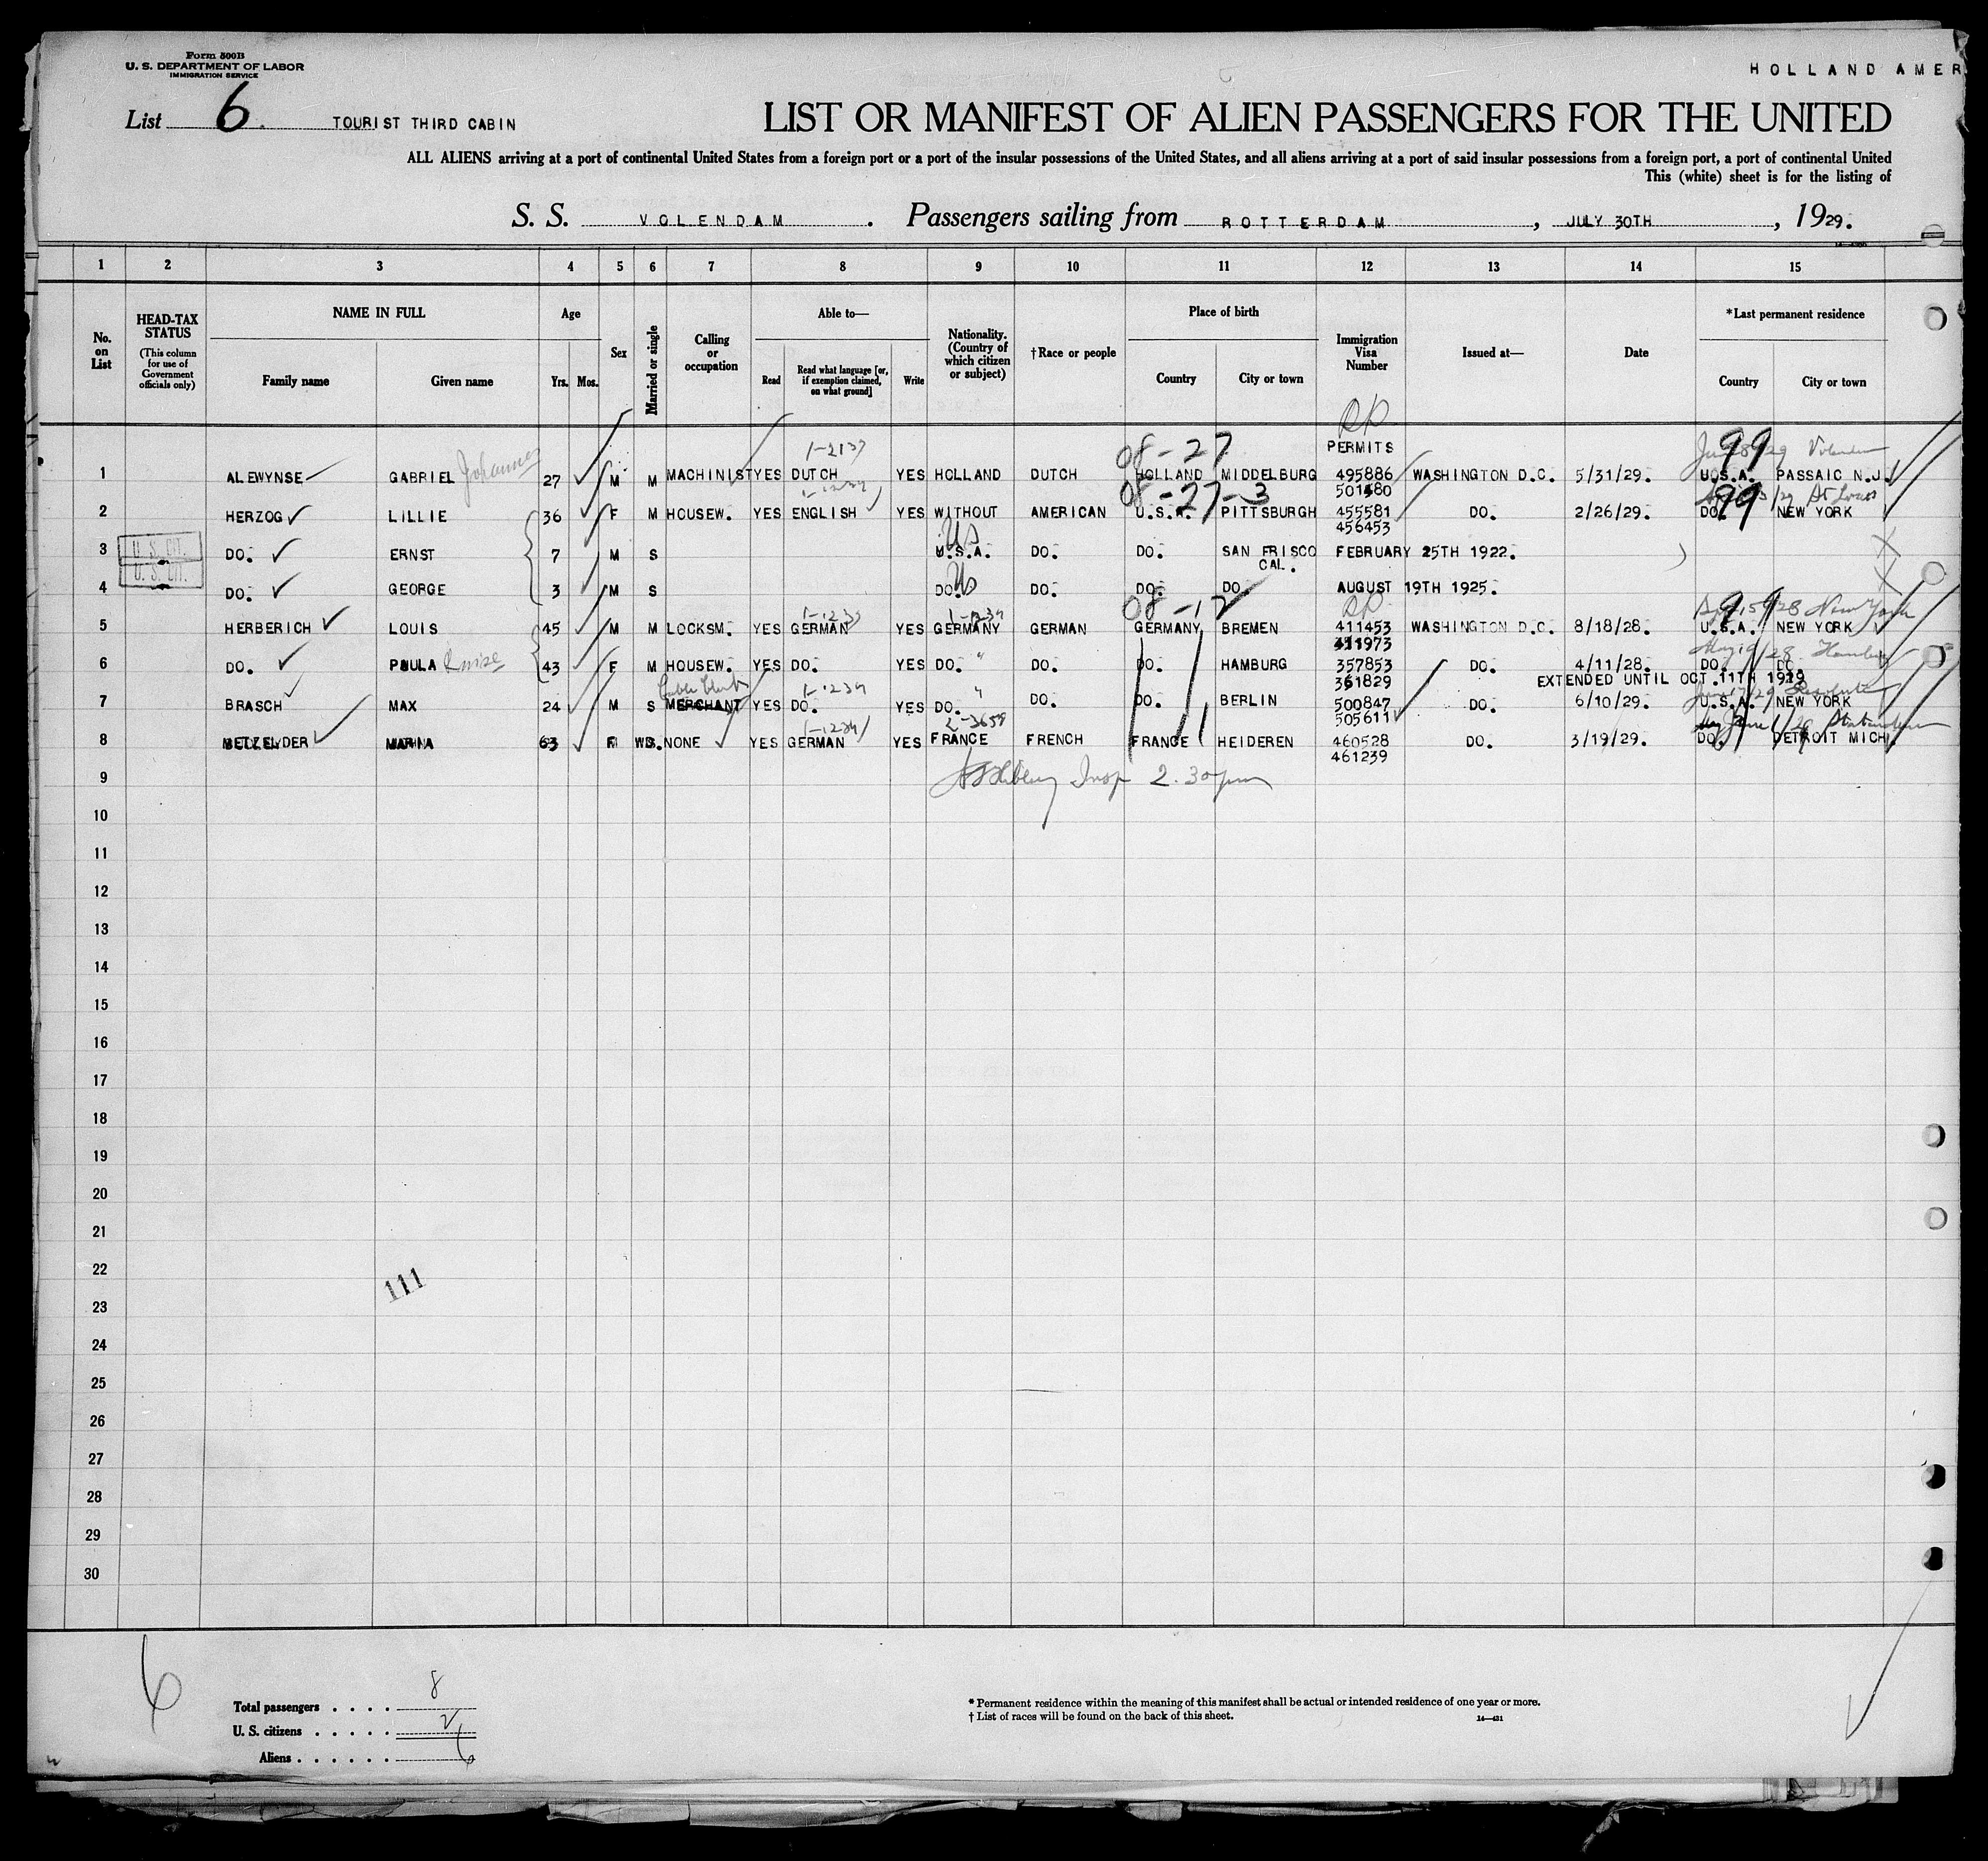 Form 500B
U. S. DEPARTMENT OF LABOR
IMMIGRATION SERVICE
HOLLAND AMER
List 6. TOURIST THIRD CABIN
LIST OR MANIFEST OF ALIEN PASSENGERS FOR THE UNITED
ALL ALIENS arriving at a port of continental United States from a foreign port or a port of the insular possessions of the United States, and all aliens arriving at a port of said insular possessions from a foreign port, a port of continental United
This (white) sheet is for the listing of
S. S. VOLENDAM. Passengers sailing from ROTTERDAM, JULY 30TH, 1929.
1 2 3 4 5 6 7 8 9 10 11 12 13 14 15
No. on List
HEAD-TAX STATUS
(This column for use of Government officials only)
NAME IN FULL
Family name Given name
Age
Yrs. Mos.
Sex
Married or single
Calling or occupation
Able to—
Read Read what language [or, if exemption claimed, on what ground] Write
Nationality. (Country of which citizen or subject)
†Race or people
Place of birth
Country City or town
Immigration Visa Number
Issued at—
Date
*Last permanent residence
Country City or town
PERMITS
08-27 99
1 ALEWYNSE GABRIEL Johannes 27 M M MACHINIST YES DUTCH YES HOLLAND DUTCH HOLLAND MIDDELBURG 495886 WASHINGTON D.C. 5/31/29. U.S.A. PASSAIC N.J.
501480
08-27-3 99 St Louis
2 HERZOG LILLIE 36 F M HOUSEW. YES ENGLISH YES WITHOUT AMERICAN U.S.A. PITTSBURGH 455581 DO. 2/26/29. DO. NEW YORK
456453
U. S. CIT.
US
3 DO. ERNST 7 M S U.S.A. DO. DO. SAN FRISCO CAL. FEBRUARY 25TH 1922.
U. S. CIT.
US
4 DO. GEORGE 3 M S DO. DO. DO. DO. AUGUST 19TH 1925.
1-1239 1-1239 08-12 99 New York
5 HERBERICH LOUIS 45 M M LOCKSM. YES GERMAN YES GERMANY GERMAN GERMANY BREMEN 411453 WASHINGTON D.C. 8/18/28. U.S.A. NEW YORK
411973
6 DO. PAULA 43 F M HOUSEW. YES DO. YES DO. DO. DO. HAMBURG 357853 DO. 4/11/28. DO. DO.
361829 EXTENDED UNTIL OCT.11TH 1929
7 BRASCH MAX 24 M S MERCHANT YES DO. YES DO. DO. DO. BERLIN 500847 DO. 6/10/29. U.S.A. NEW YORK
505611
8 METZELYDER MARIA 63 F WD. NONE YES GERMAN YES FRANCE FRENCH FRANCE HEIDEREN 460528 DO. 3/19/29. DO. DETROIT MICH.
461239
9 Insp 2.30 pm
10
11
12
13
14
15
16
17
18
19
20
21
22
111
23
24
25
26
27
28
29
30
6
Total passengers . . . . 8
U. S. citizens . . . . . 2
Aliens . . . . . . 6
* Permanent residence within the meaning of this manifest shall be actual or intended residence of one year or more.
† List of races will be found on the back of this sheet.
14—431